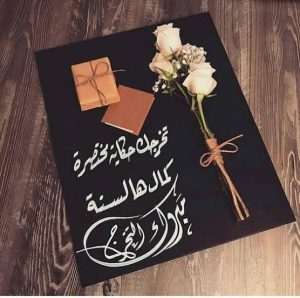 تخرجك حكاية مختصرة
كمالها السنة
مبروك التخرج